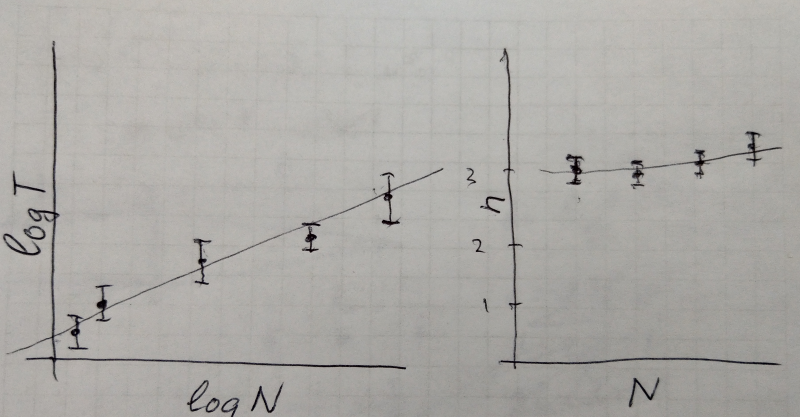 log T
log N
3
n
2
1
N